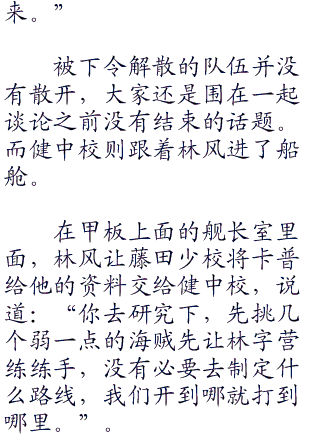 来。”
被下令解散的队伍并没
有散开，大家还是围在一起
谈论之前没有结束的话题。
而健中校则跟着林风进了船
舱。
在甲板上面的舰长室里
面，林风让藤田少校将卡普
给他的资料交给健中校，说
道：“你去研究下，先挑几
个弱一点的海贼先让林字营
练练手，没有必要去制定什
么路线，我们开到哪就打到
哪里。”。